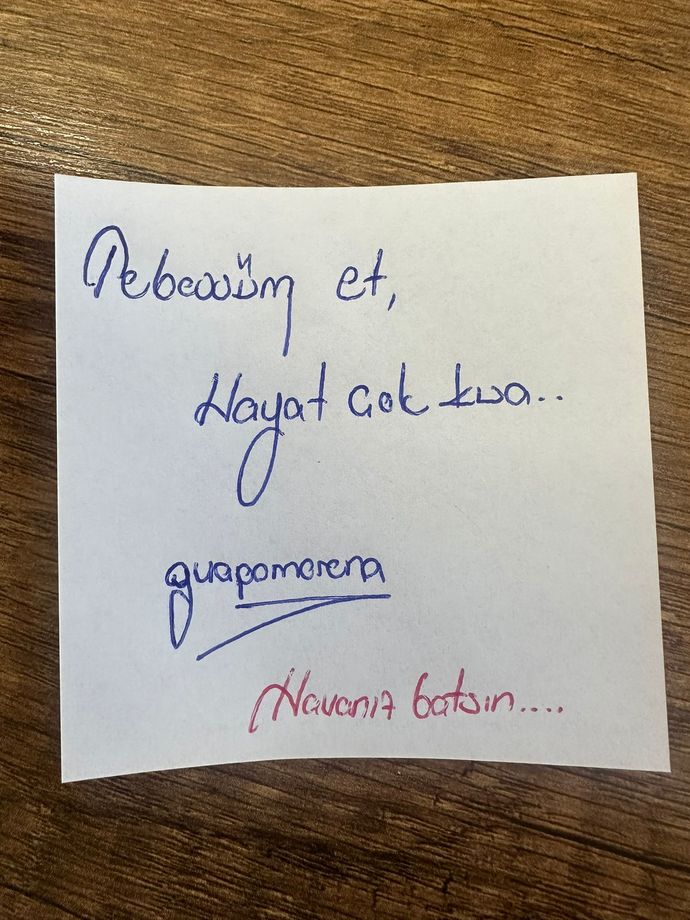 Tebessüm et,
Hayat çok kısa..
guapomorena
Havanız batsın....